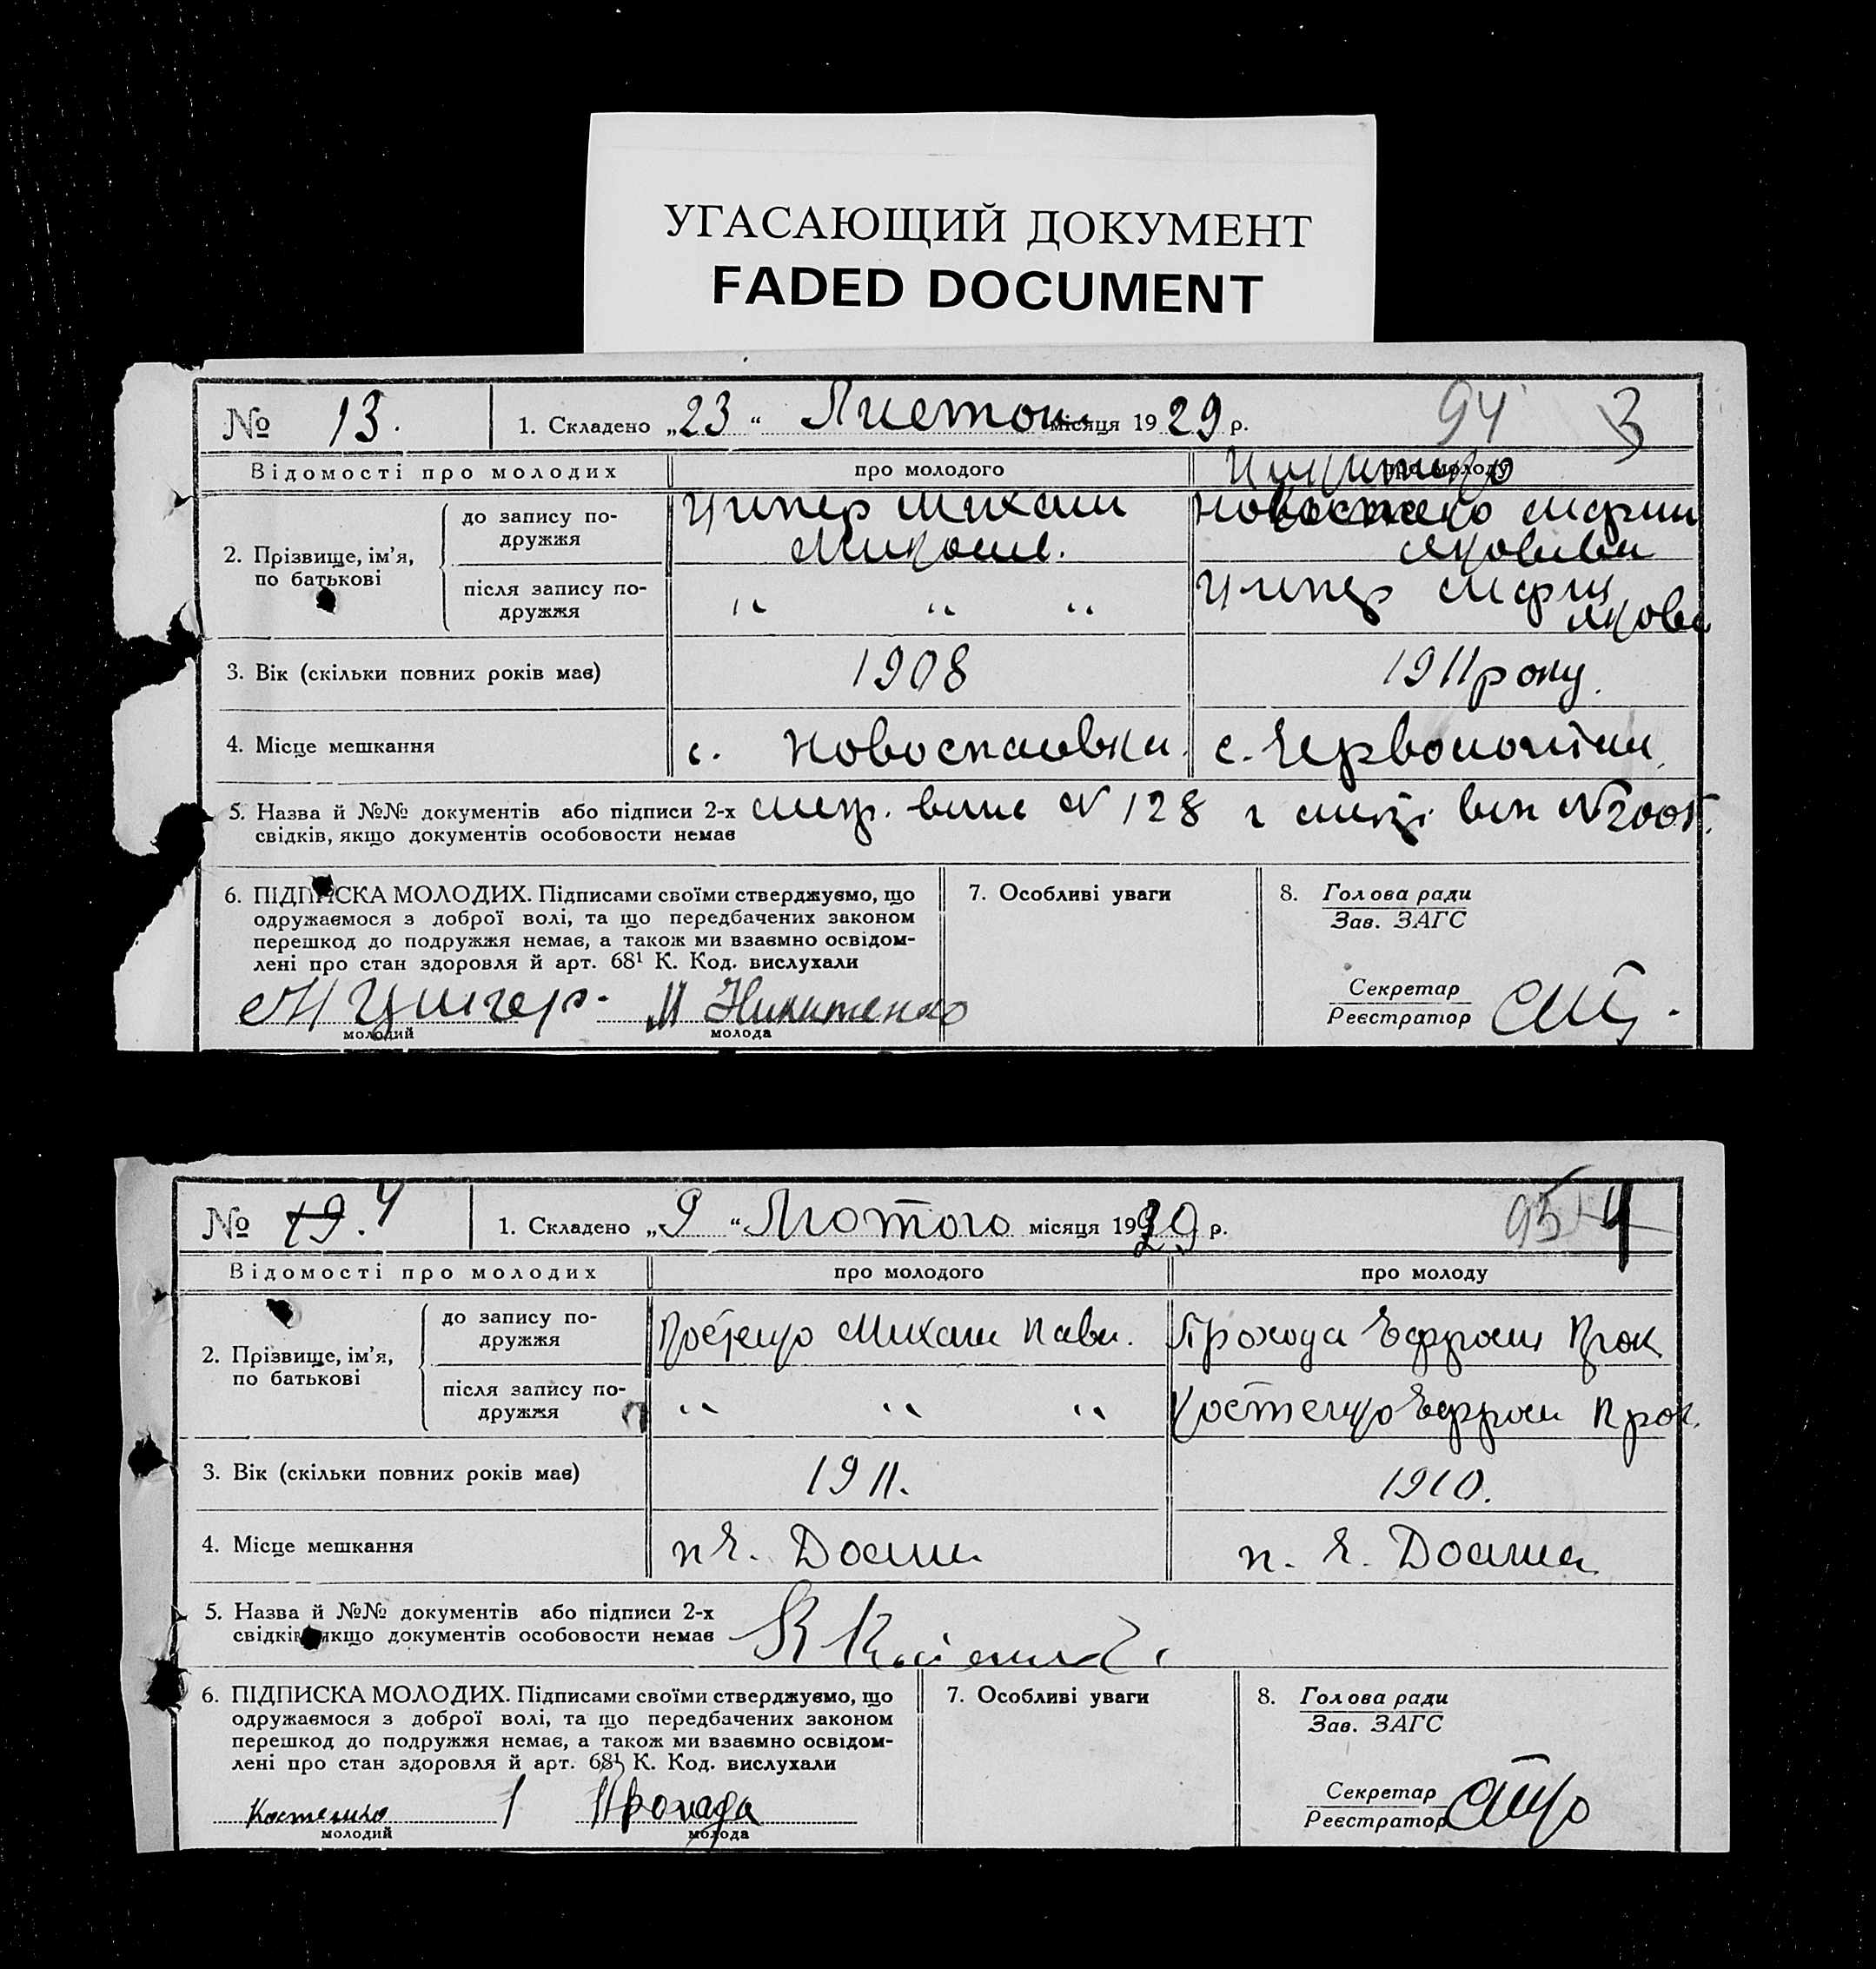 УГАСАЮЩИЙ ДОКУМЕНТ
FADED DOCUMENT
№ 13. 1. Складено „23 “ Листоп. місяця 1929 р. 94 3
Відомості про молодих про молодого про молоду
2. Прізвище, ім'я, по батькові
до запису подружжя
Ципер Михаил
Якових
після запису подружжя
" " "
Ципер
3. Вік (скільки повних років має) 1908 1911 року.
4. Місце мешкання с. Новоспаівка. с.
5. Назва й №№ документів або підписи 2-х № 128 № 2005.
свідків, якщо документів особовости немає
6. ПІДПИСКА МОЛОДИХ. Підписами своїми стверджуємо, що 7. Особливі уваги 8. Голова ради
одружаємося з доброї волі, та що передбачених законом Зав. ЗАГС
перешкод до подружжя немає, а також ми взаємно освідом-
лені про стан здоровля й арт. 68¹ К. Код. вислухали
Секретар
М Никитенко Реєстратор
молодий молода
№ 19. 4 1. Складено „9 “ Лютого місяця 1929 р. 95 4
Відомості про молодих про молодого про молоду
2. Прізвище, ім'я, по батькові
до запису подружжя
Костенко Михаил Павл. Прохода Прок
після запису подружжя
" " " Костенко Прок.
3. Вік (скільки повних років має) 1911. 1910.
4. Місце мешкання
5. Назва й №№ документів або підписи 2-х
свідків, якщо документів особовости немає
6. ПІДПИСКА МОЛОДИХ. Підписами своїми стверджуємо, що 7. Особливі уваги 8. Голова ради
одружаємося з доброї волі, та що передбачених законом Зав. ЗАГС
перешкод до подружжя немає, а також ми взаємно освідом-
лені про стан здоровля й арт. 68¹ К. Код. вислухали
Секретар
Костенко Прохода Реєстратор
молодий молода